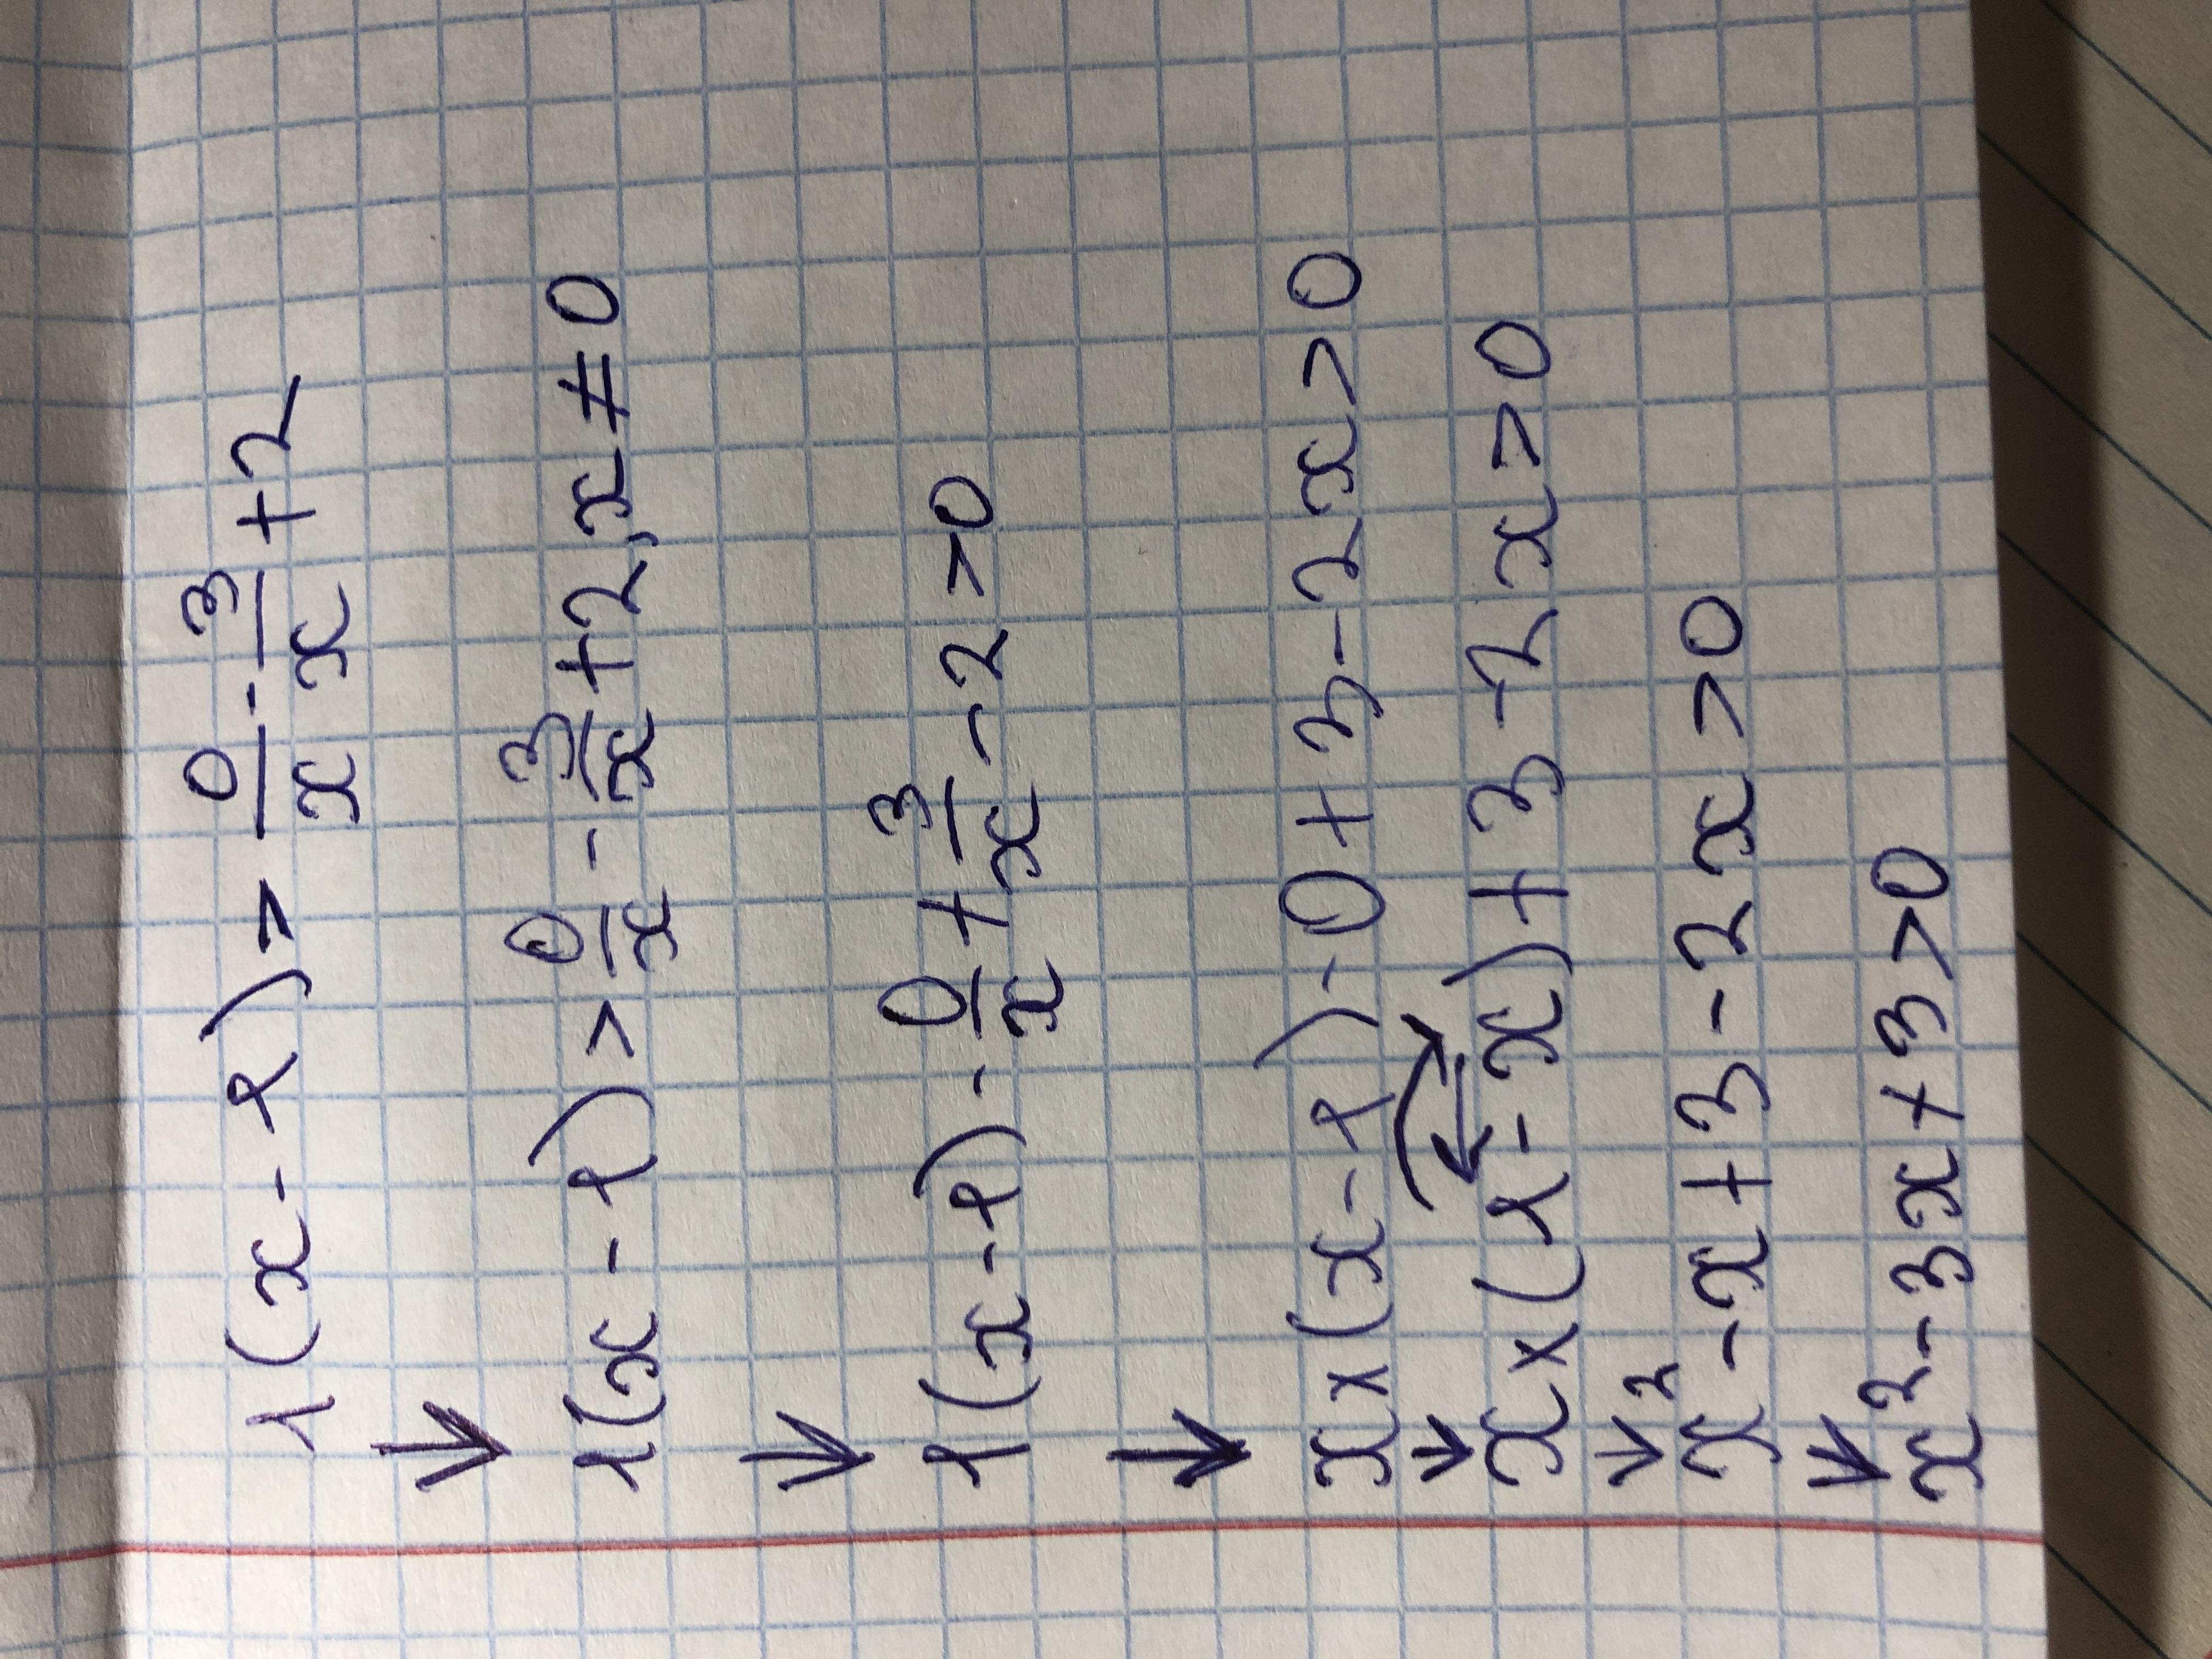 1(x-1)> 0/x - 3/x +2
↓
1(x-1)> 0/x - 3/x +2, x≠0
↓
1(x-1)- 0/x + 3/x -2>0
↓
x×(x-1)-0+3-2x>0
↓
x×(1-x)+3-2x>0
↓
x²-x+3-2x>0
↓
x²-3x+3>0